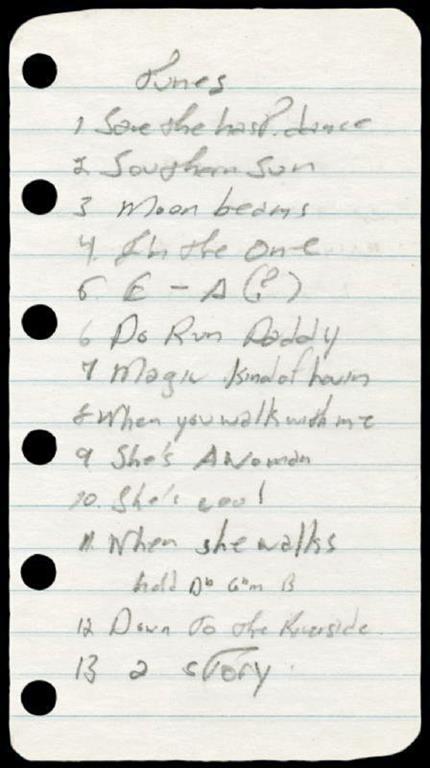 Tunes
1 Save the last dance
2 Southern Sun
3 Moon beams
4. I'm the one
5. E - A (?)
6 Do Run Daddy
7 Magic kind of
8 When you walk with me
9 She's A woman
10. She's cool
11. When she walks
hold D♭ G♭m B
12 Down To the Riverside
13 a story